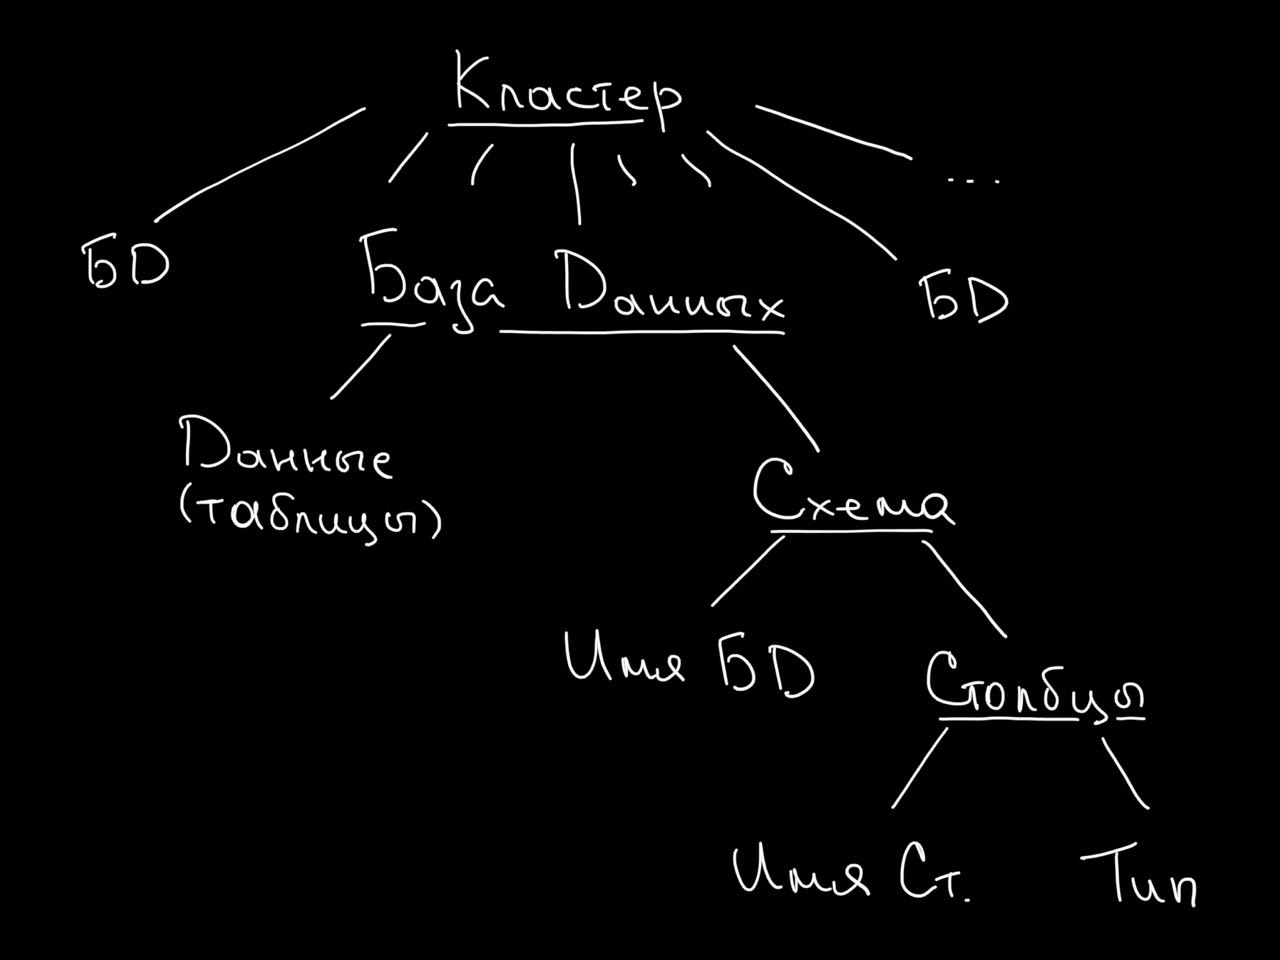 Кластер
...
БD
База Dанных
БD
Dанные
(таблицы)
Схема
Имя БD
Столбцы
Имя Ст.
Тип